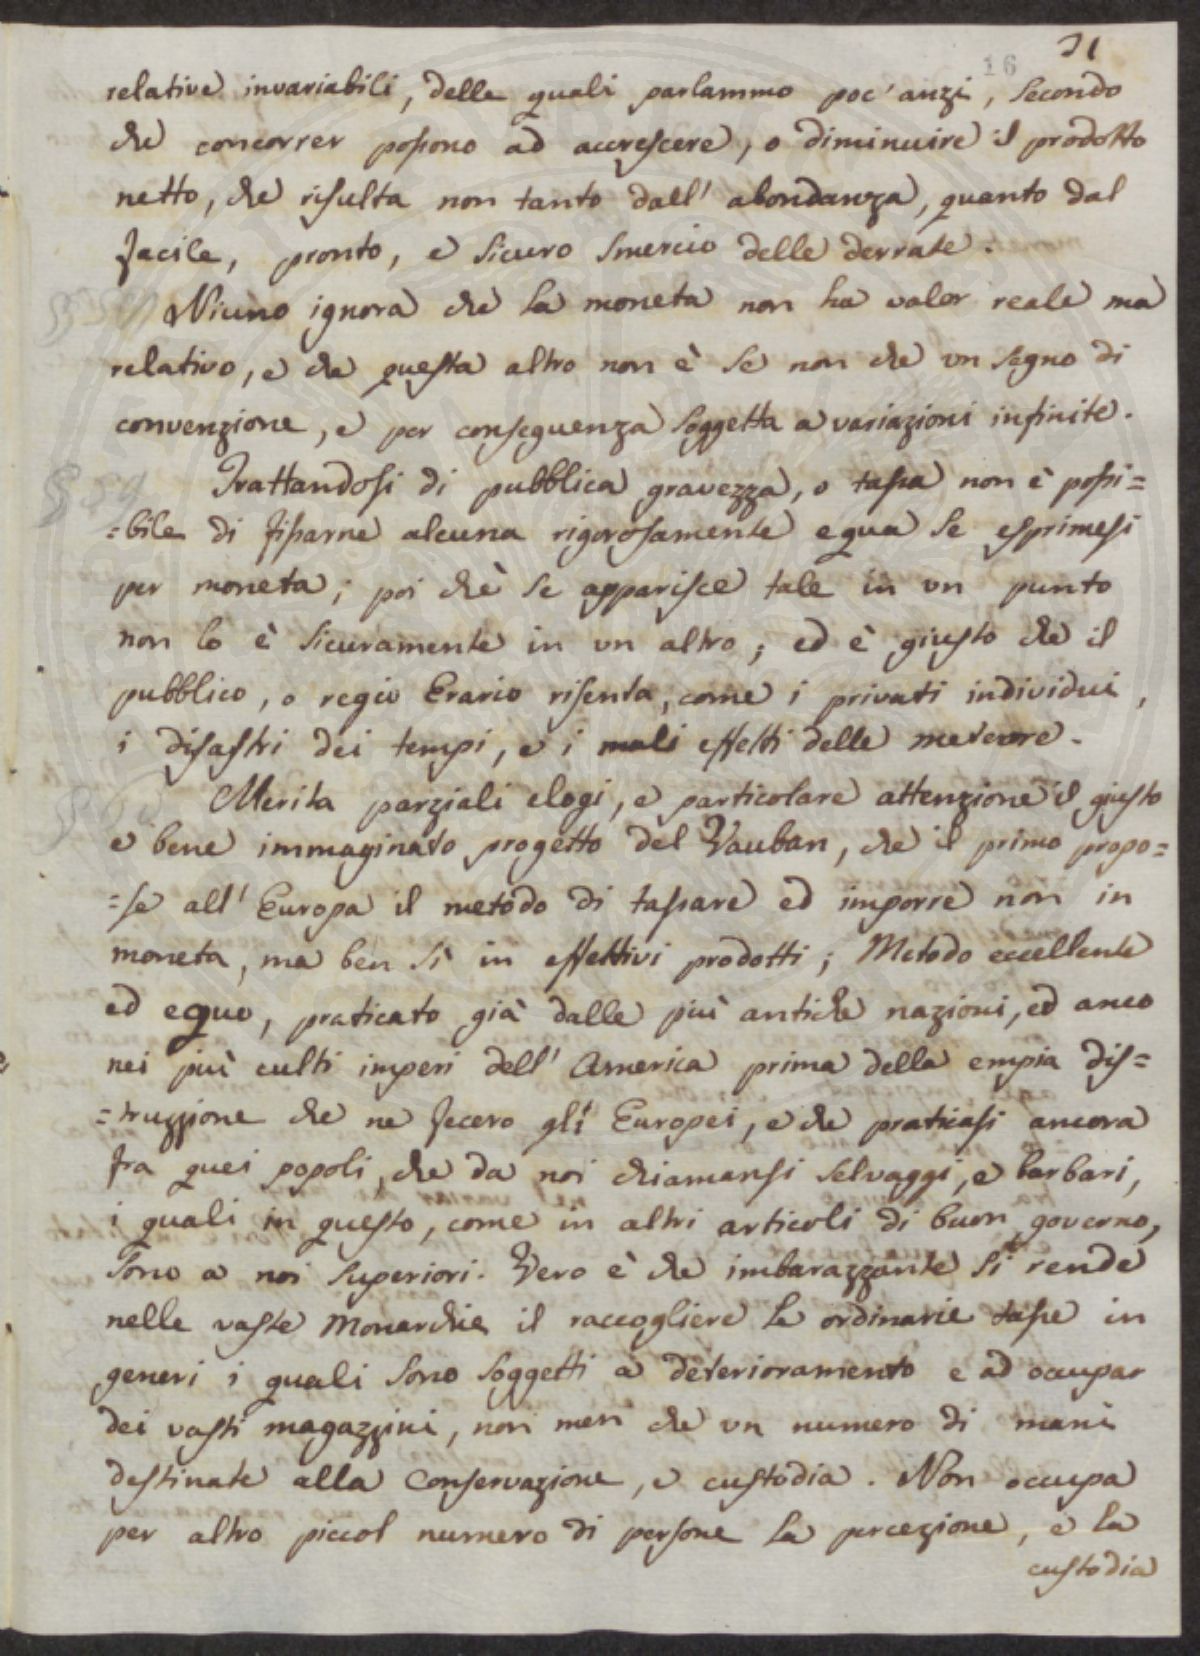 31
16
relative invariabili, delle quali parlammo poc' anzi, secondo
che concorrer possono ad accrescere, o diminuire il prodotto
netto, che risulta non tanto dall' abondanza, quanto dal
facile, pronto, e sicuro smercio delle derrate.
Niuno ignora che la moneta non ha valor reale ma
relativo, e che questa altro non è se non che un segno di
convenzione, e per conseguenza soggetta a variazioni infinite.
§ 59 Trattandosi di pubblica gravezza, o tassa non è possi=
=bile di fissarne alcuna rigorosamente equa se esprimesi
per moneta; poi chè se apparisce tale in un punto
non lo è sicuramente in un altro; ed è giusto che il
pubblico, o regio Erario risenta, come i privati individui,
i disastri dei tempi, e i mali effetti delle meteore.
§ 60 Merita parziali elogi, e particolare attenzione il giusto
e bene immaginato progetto del Vauban, che il primo propo=
=se all' Europa il metodo di tassare ed imporre non in
moneta, ma ben sì in effettivi prodotti; Metodo eccellente
ed equo, praticato già dalle più antiche nazioni, ed anco
nei più culti imperi dell' America prima della empia dis=
=truzzione che ne fecero gli Europei, e che praticasi ancora
fra quei popoli, che da noi chiamansi selvaggi, e barbari,
i quali in questo, come in altri articoli di buon governo,
sono a noi superiori. Vero è che imbarazzante si rende
nelle vaste Monarchie il raccogliere le ordinarie tasse in
generi i quali sono soggetti a deterioramento e ad occupar
dei vasti magazzini, non men che un numero di mani
destinate alla conservazione, e custodia. Non occupa
per altro piccol numero di persone la percezione, e la
custodia